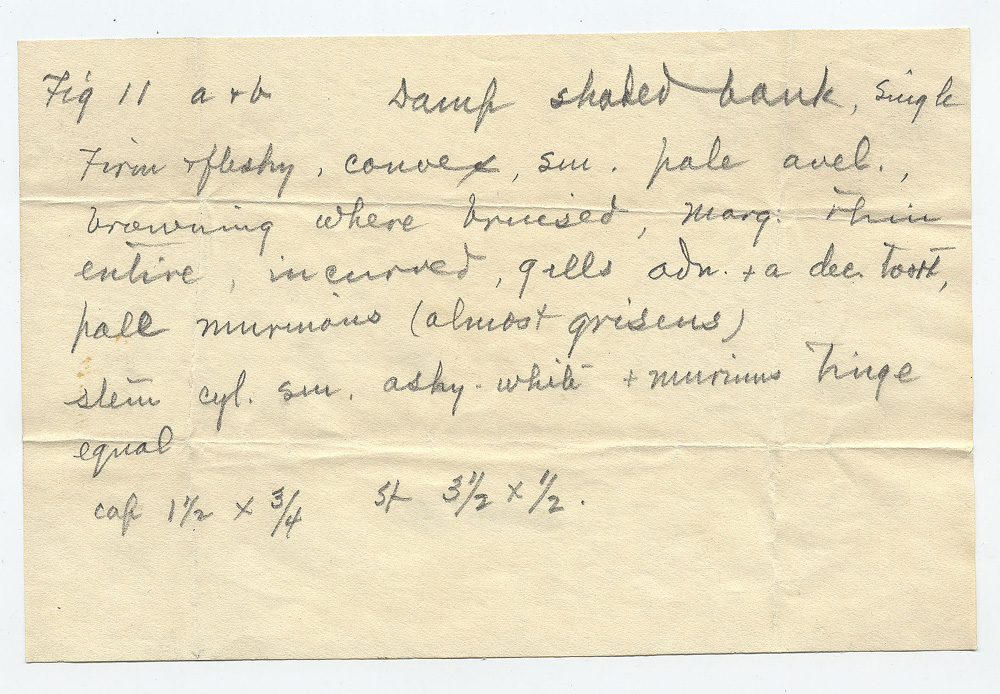 Fig 11 a + b Damp shaded bank, Single
Firm + fleshy, convex, sm. pale avel.,
browning where bruised, marg. thin
entire, incurved, gills adn. + a dec. tooth,
pale murinous (almost griseus)
stem cyl. sm. ashy-white + murinus tinge
equal
cap 1 1/2 x 3/4 st 3 1/2 x 1/2.